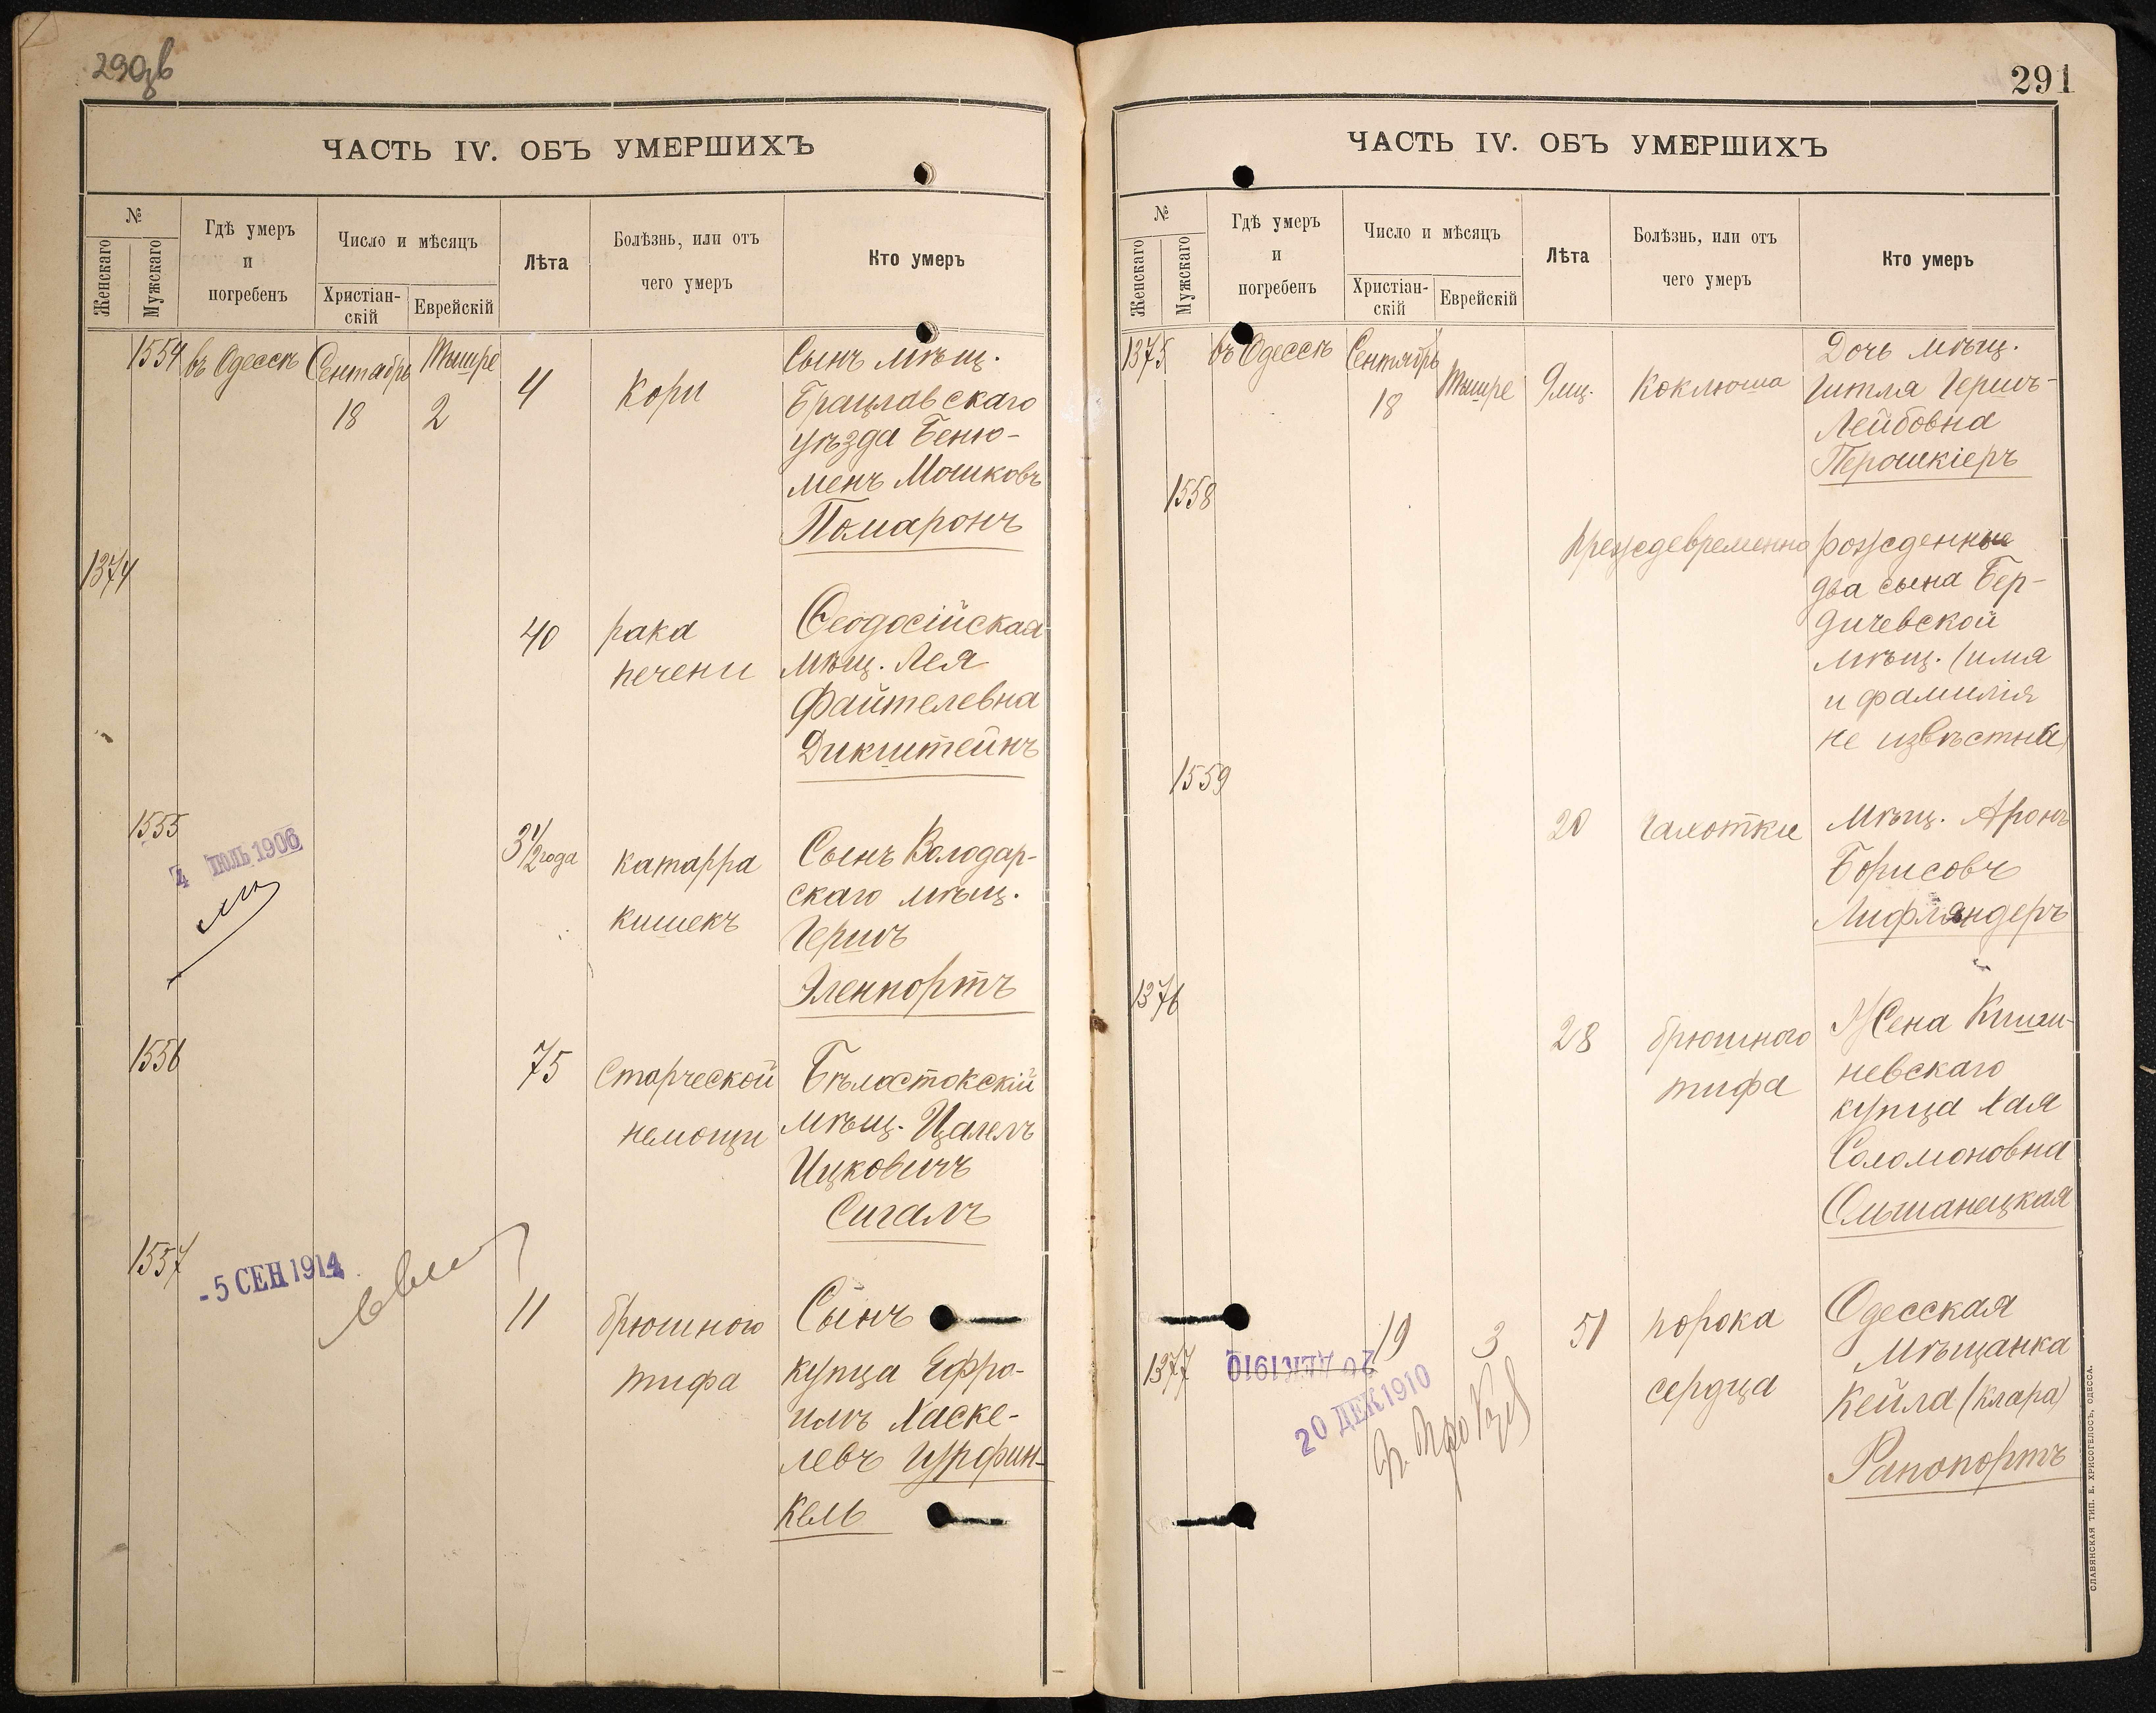 290об
ЧАСТЬ IV. ОБЪ УМЕРШИХЪ
№
Женскаго
Мужскаго
Гдѣ умеръ
и
погребенъ
Число и мѣсяцъ
Христіан-
скій
Еврейскій
Лѣта
Болѣзнь, или отъ
чего умеръ
Кто умеръ
1554 въ Одессѣ Сентябрь 18 Тишре 2 4 кори
Сынъ мѣщ.
Брацлавскаго
уѣзда Беню-
менъ Мошковъ
Помаронъ
1374
40 рака
печени
Ѳеодосійская
мѣщ. Лея
Файтелевна
Дикштейнъ
1555
4 ІЮЛЬ 1906
3 1/2 года катарра
кишекъ
Сынъ Володар-
скаго мѣщ.
Гершъ
Эленпортъ
1556
75 Старческой
немощи
Бѣлостокскій
мѣщ. Цалелъ
Ицковичъ
Сигалъ
1557
- 5 СЕН 1914
11 брюшного
тифа
Сынъ
купца Ефро-
имъ Хаске-
левъ Гурфин-
кель
291
ЧАСТЬ IV. ОБЪ УМЕРШИХЪ
№
Женскаго
Мужскаго
Гдѣ умеръ
и
погребенъ
Число и мѣсяцъ
Христіан-
скій
Еврейскій
Лѣта
Болѣзнь, или отъ
чего умеръ
Кто умеръ
1375 въ Одессѣ Сентябрь 18 Тишре 9 мц. коклюша
Дочь мѣщ.
Гитля Гершъ-
Лейбовна
Перошкіеръ
1558
преждевременно рожденные
два сына Бер-
дичевской
мѣщ. (имя
и фамилія
не извѣстна)
1559
20 чахотки
Мѣщ. Аронъ
Борисовъ
Лифляндеръ
1376
28 брюшного
тифа
Жена Киши-
невскаго
купца Хая
Соломоновна
Ольшанецкая
1377
20 ДЕК 1910
20 ДЕК 1910
19 3 51 порока
сердца
Одесская
мѣщанка
Кейла (Клара)
Рапопортъ
СЛАВЯНСКАЯ ТИП. Е. ХРИСОГЕЛОСЪ, ОДЕССА.